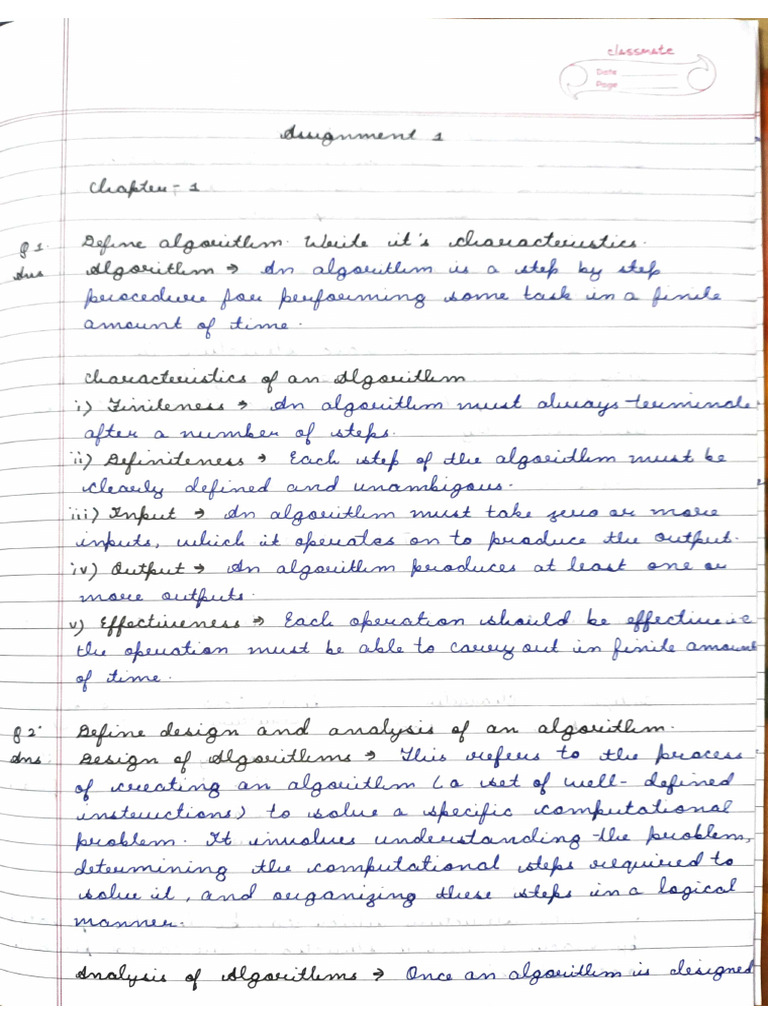 classmate
Date
Page
Assignment 1
Chapter - 1
Q 1. Define algorithm. Write it's characteristics.
Ans Algorithm → An algorithm is a step by step
procedure for performing some task in a finite
amount of time.
Characteristics of an Algorithm
i) Finiteness → An algorithm must always terminate
after a number of steps.
ii) Definiteness → Each step of the algorithm must be
clearly defined and unambigous.
iii) Input → An algorithm must take zero or more
inputs, which it operates on to produce the output.
iv) Output → An algorithm produces at least one or
more outputs.
v) Effectiveness → Each operation should be effective i.e
the operation must be able to carry out in finite amount
of time.
Q 2. Define design and analysis of an algorithm.
Ans Design of Algorithms → This refers to the process
of creating an algorithm (a set of well-defined
instructions) to solve a specific computational
problem. It involves understanding the problem,
determining the computational steps required to
solve it, and organizing these steps in a logical
manner.
Analysis of Algorithms → Once an algorithm is designed